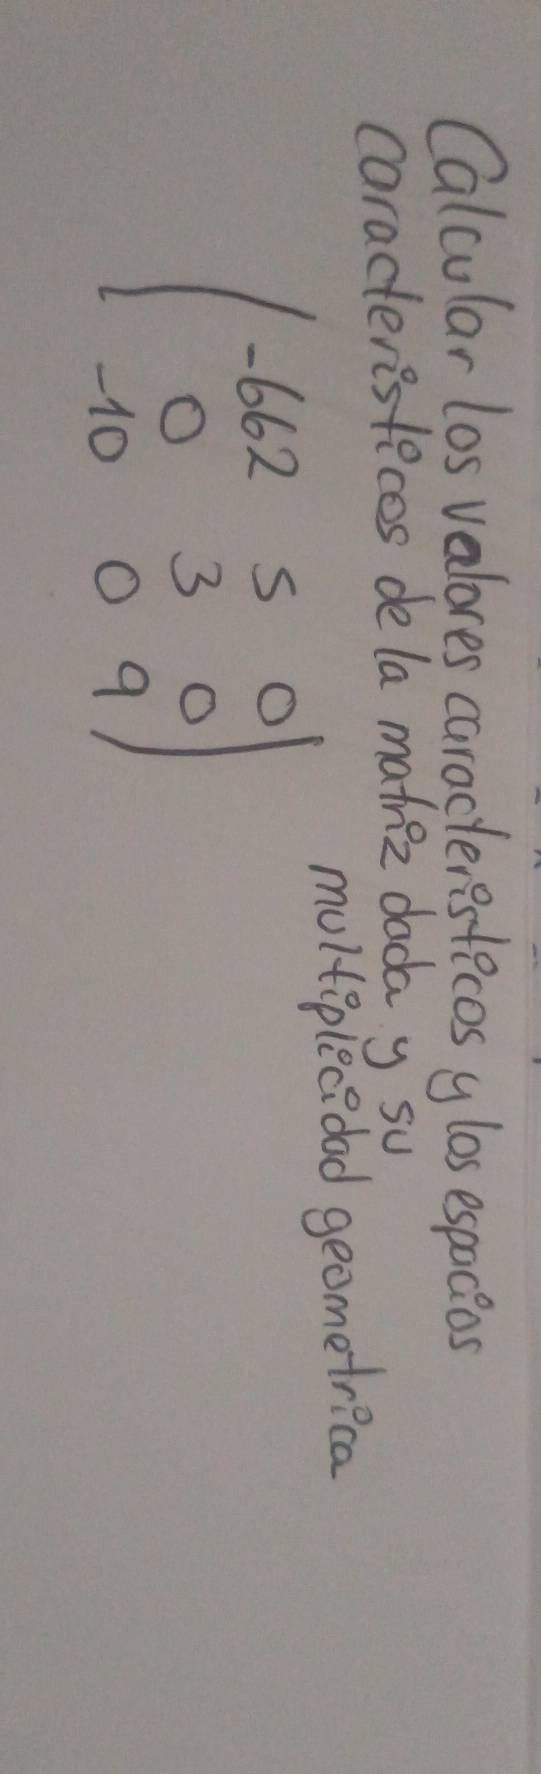 Calcular los valores caracteristicos y los espacios
caracteristicos de la matriz dada y su
multiplicidad geometrica
-662 5 0
0 3 0
-10 0 9